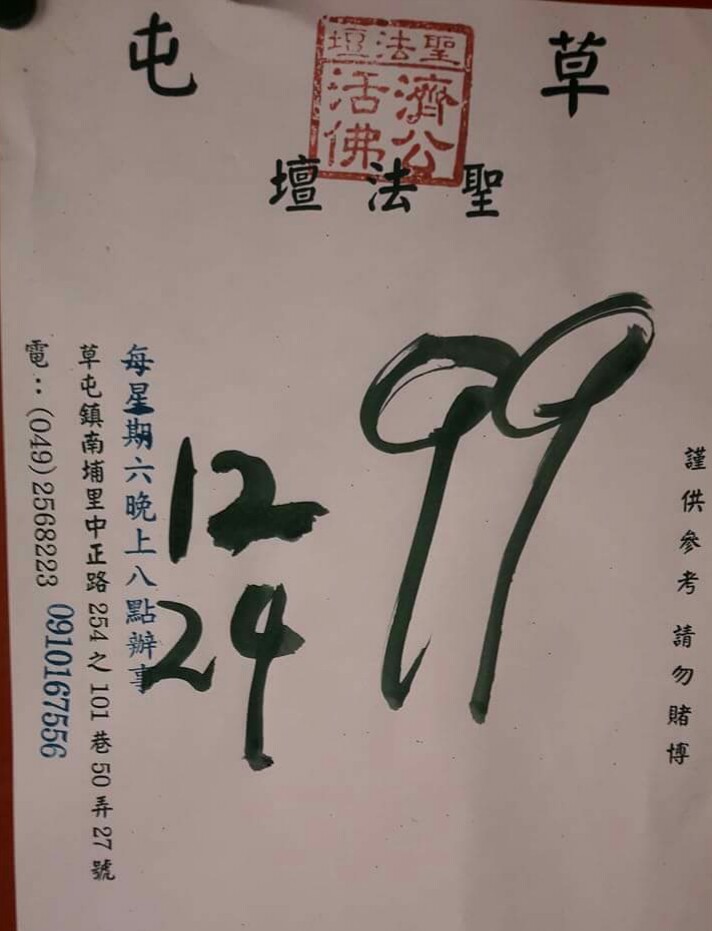 草屯
聖法壇
濟公
活佛
聖法壇
謹供參考 請勿賭博
99
12
24
每星期六晚上八點辦事
草屯鎮南埔里中正路254之101巷50弄27號
電：(049)2568223 0910167556